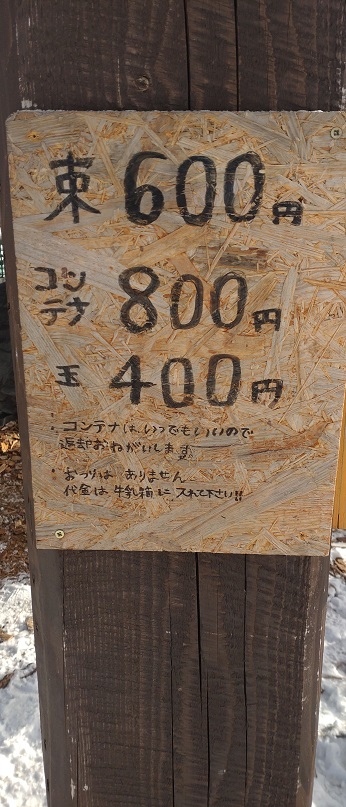 束 600円
コンテナ 800円
玉 400円
・コンテナはいつでもいいので
返却おねがいします。
・おつりは ありません
代金は 牛乳箱に入れて下さい!!